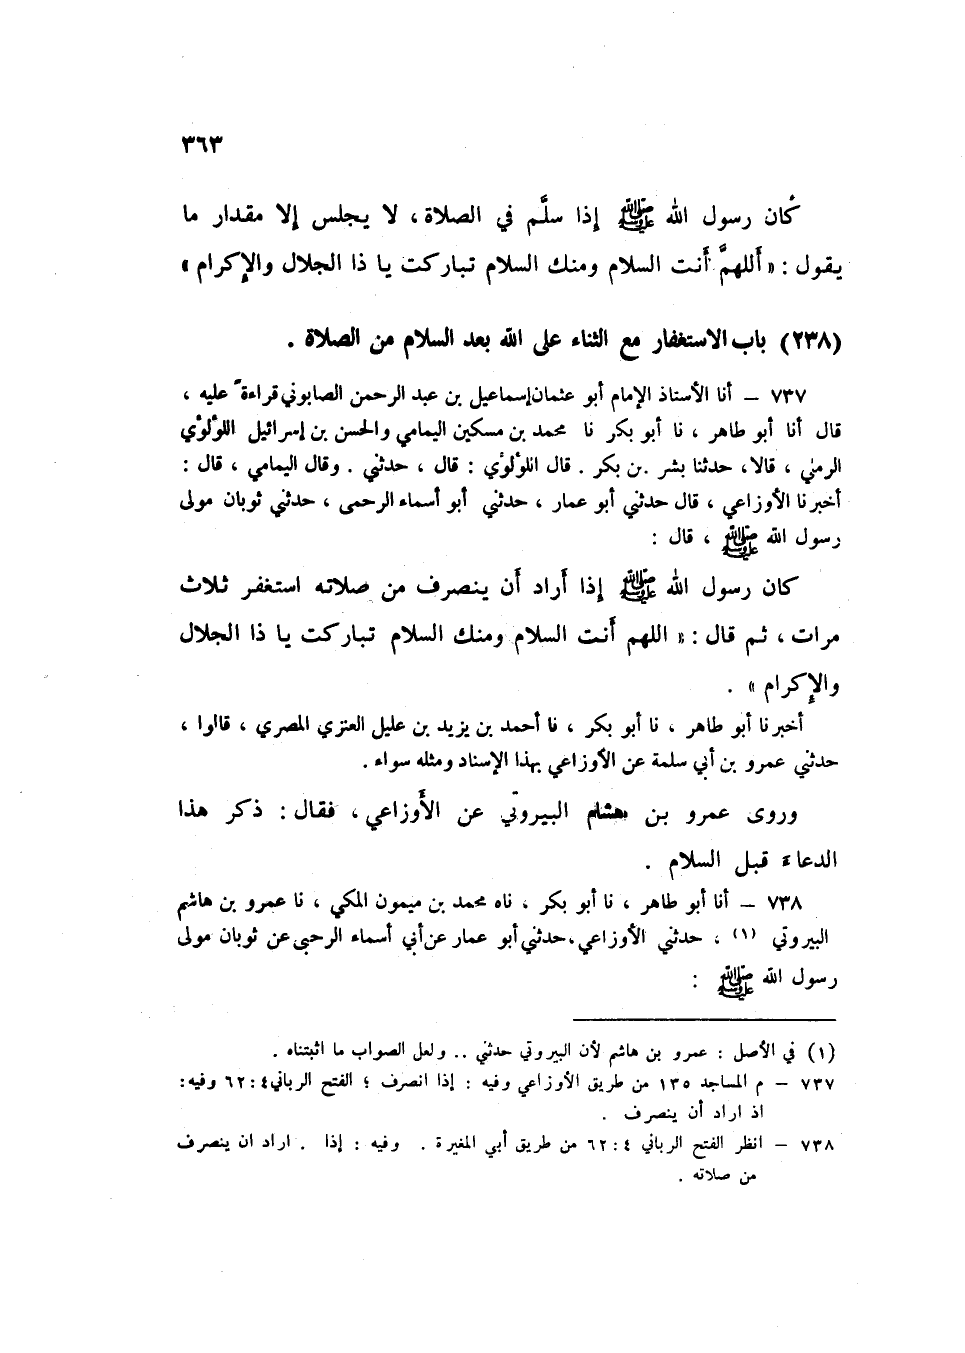 ٣٦٣
كان رسول الله ﷺ إذا سلَّم في الصلاة، لا يجلس إلا مقدار ما
يقول : « أللهمَّ أنت السلام ومنك السلام تباركت يا ذا الجلال والإكرام »
(٢٣٨) باب الاستغفار مع الثناء على الله بعد السلام من الصلاة .
٧٣٧ – أنا الأستاذ الإمام أبو عثمان إسماعيل بن عبد الرحمن الصابوني قراءة عليه ،
قال أنا أبو طاهر ، نا أبو بكر نا محمد بن مسكين اليمامي والحسن بن إسرائيل اللؤلؤي
الرملي ، قالا، حدثنا بشر بن بكر . قال اللؤلؤي : قال ، حدثني . وقال اليمامي ، قال :
أخبرنا الأوزاعي ، قال حدثني أبو عمار ، حدثني أبو أسماء الرحمى ، حدثني ثوبان مولى
رسول الله ﷺ ، قال :
كان رسول الله ﷺ إذا أراد أن ينصرف من صلاته استغفر ثلاث
مرات ، ثم قال : « اللهم أنت السلام ومنك السلام تباركت يا ذا الجلال
والإكرام » .
أخبرنا أبو طاهر ، نا أبو بكر ، نا أحمد بن يزيد بن عليل العنزي المصري ، قالوا ،
حدثني عمرو بن أبي سلمة عن الأوزاعي بهذا الإسناد ومثله سواء .
وروى عمرو بن هشام البيروتي عن الأوزاعي، فقال : ذكر هذا
الدعاء قبل السلام .
٧٣٨ – أنا أبو طاهر ، نا أبو بكر ، ناه محمد بن ميمون المكي ، نا عمرو بن هاشم
البيروتي (١) ، حدثني الأوزاعي، حدثني أبو عمار عن أبي أسماء الرحبى عن ثوبان مولى
رسول الله ﷺ :
(١) في الأصل : عمرو بن هاشم لأن البيروتي حدثني .. ولعل الصواب ما اثبتناه .
٧٣٧ – م المساجد ١٣٥ من طريق الأوزاعي وفيه : إذا انصرف ؛ الفتح الرباني ٤ : ٦٢ وفيه :
اذ اراد أن ينصرف .
٧٣٨ – انظر الفتح الرباني ٤ : ٦٢ من طريق أبي المغيرة . وفيه : إذا . اراد ان ينصرف
من صلاته .